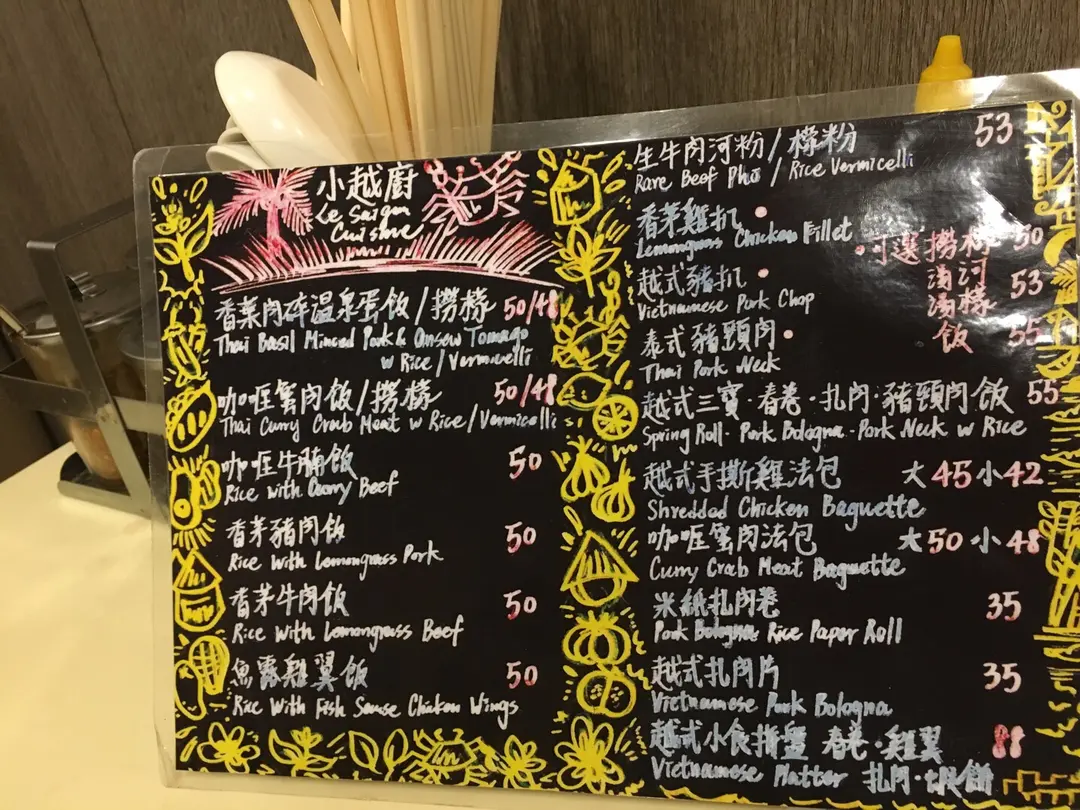 小越廚
Le Saigon
Cuisine
香菜肉碎溫泉蛋飯/撈檬 50/48
Thai Basil Minced Pork & Onsew Tomago
w Rice/Vermicelli
咖喱蟹肉飯/撈檬 50/48
Thai Curry Crab Meat w Rice/Vermicelli
咖喱牛腩飯 50
Rice with Curry Beef
香茅豬肉飯 50
Rice With Lemongrass Pork
香茅牛肉飯 50
Rice With Lemongrass Beef
魚露雞翼飯 50
Rice With Fish Sause Chicken Wings
生牛肉河粉/檬粉 53
Rare Beef Pho / Rice Vermicelli
香茅雞扒
Lemongrass Chicken Fillet
越式豬扒
Vietnamese Pork Chop
泰式豬頸肉
Thai Pork Neck
可選撈檬 50
湯河
湯檬 53
飯 55
越式三寶·春卷·扎肉·豬頸肉飯 55
Spring Roll· Pork Bologna·Pork Neck w Rice
越式手撕雞法包 大45小42
Shredded Chicken Baguette
咖喱蟹肉法包 大50小48
Curry Crab Meat Baguette
米紙扎肉卷 35
Pork Bologna Rice Paper Roll
越式扎肉片 35
Vietnamese Pork Bologna
越式小食拼盤 春卷·雞翼 88
Vietnamese Platter 扎肉·蝦餅